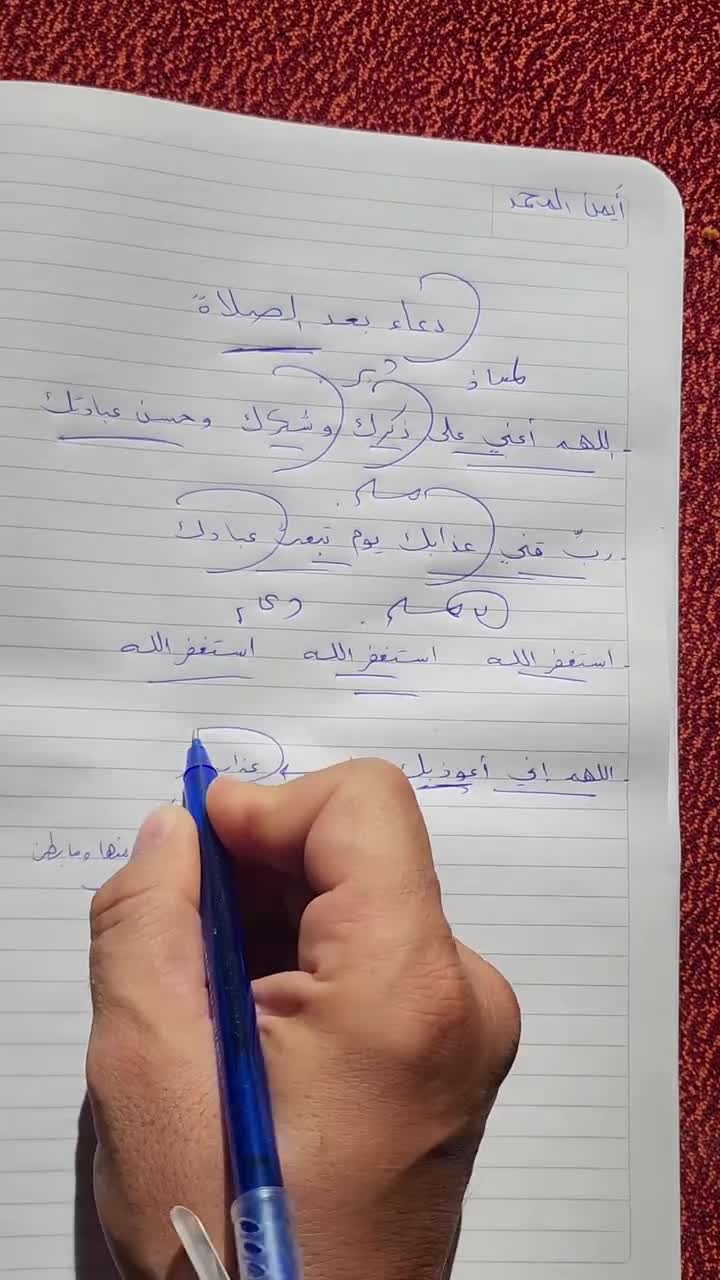 أيمن المحمد
دعاء بعد الصلاة
لمعاذ دبر
اللهم أعني على ذكرك وشكرك وحسن عبادتك
مسلم
ربِّ قني عذابك يوم تبعث عبادك
مسلم
استغفر الله استغفر الله استغفر الله
اللهم إني أعوذ بك عذاب
منها وما بطن